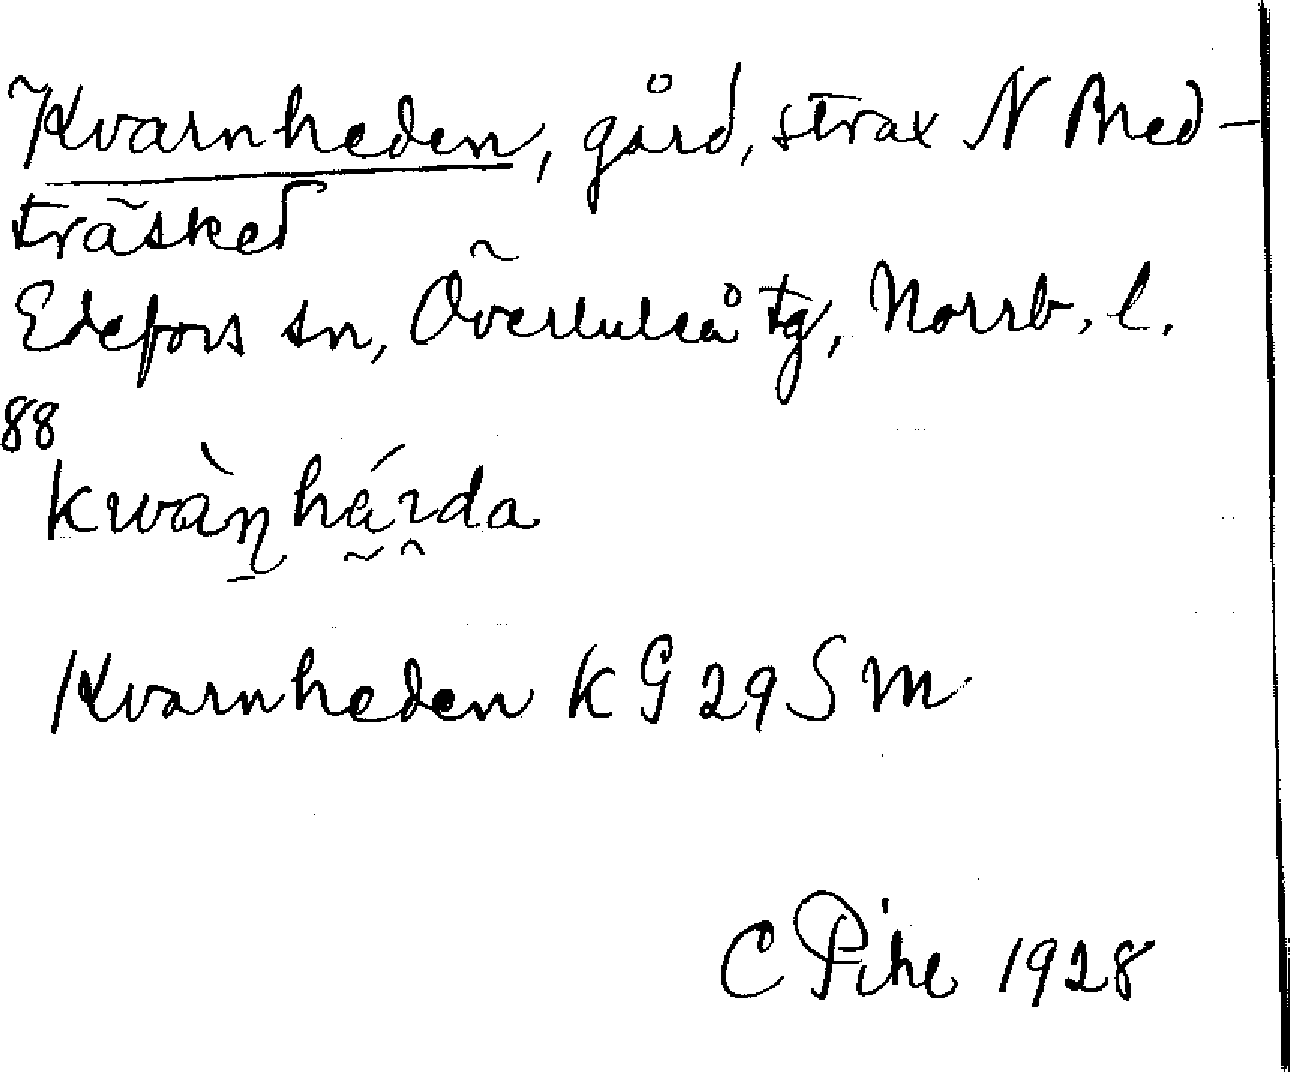 Kvarnheden, gård, strax N Bred-
träsket
Edefors sn, Överluleå tg, Norrb. l.
88
kwàṉhárda
Kvarnheden K G 29 S m
C Pihl 1928